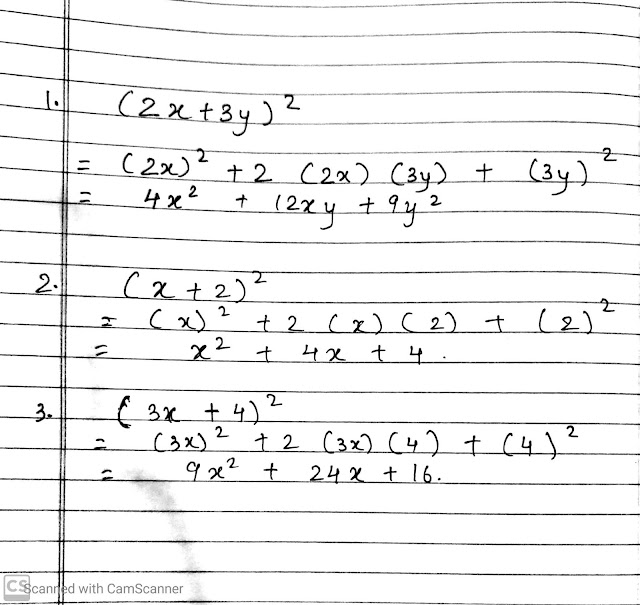 1. (2x+3y)²
= (2x)² + 2 (2x) (3y) + (3y)²
= 4x² + 12xy + 9y²
2. (x+2)²
= (x)² + 2 (x) (2) + (2)²
= x² + 4x + 4.
3. (3x + 4)²
= (3x)² + 2 (3x) (4) + (4)²
= 9x² + 24x + 16.
CS Scanned with CamScanner